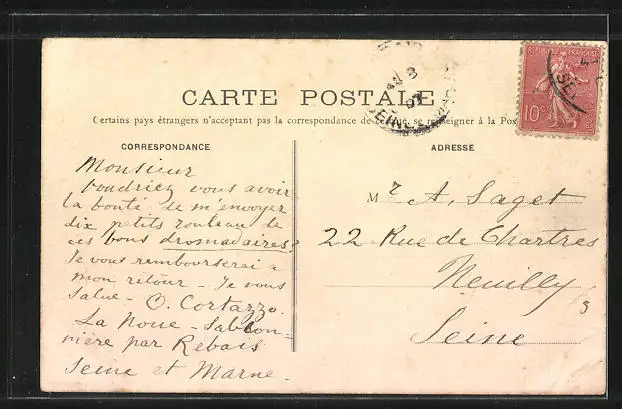 CARTE POSTALE
Certains pays étrangers n'acceptant pas la correspondance de se renseigner à la Pos
CORRESPONDANCE
Monsieur
Voudriez vous avoir
la bonté de m'envoyer
dix petits rouleau de
ces bons dromadaires?
Je vous rembourserai a
mon retour - Je vous
salue - O. Cortazzo.
La Noue - Sablon-
nière par Rebais
Seine et Marne -
ADRESSE
Mr A. Saget
22 Rue de Chartres
Neuilly s/
Seine
REPUBLIQUE FRANÇAISE
10c